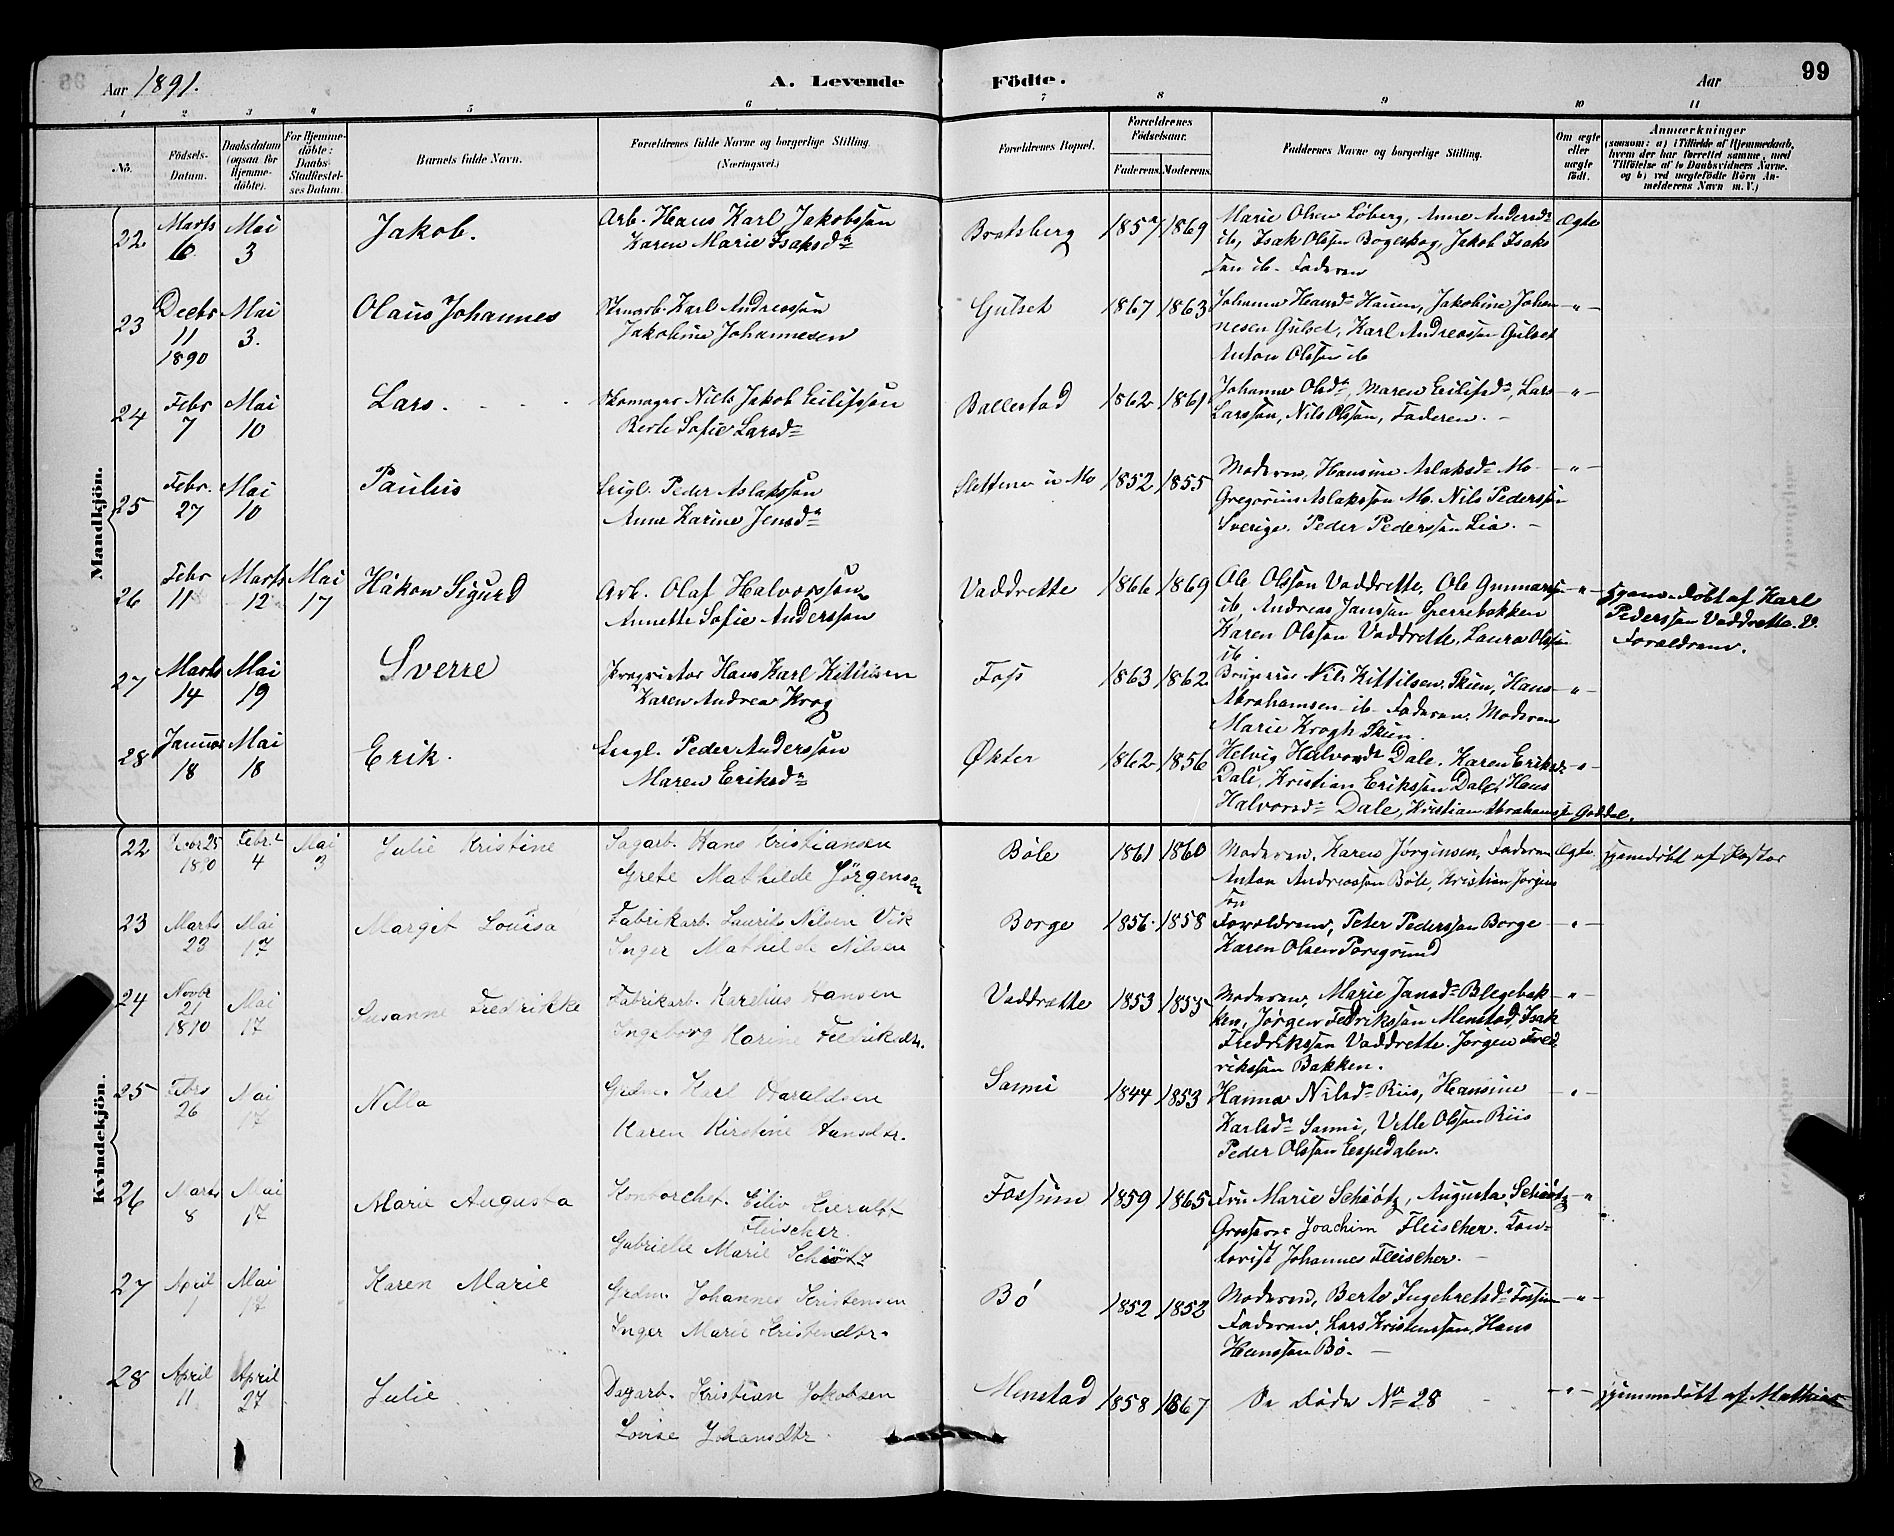 Aar 1891.
A. Levende Födte.
Aar
99
1 2 3 4 5 6 7 8 9 10 11
No.
Födsels-Datum.
Daabsdatum (ogsaa for Hjemme-döbte).
For Hjemme-döbte: Daabs-Stadfæstel-ses Datum.
Barnets fulde Navn.
Forældrenes fulde Navne og borgerlige Stilling. (Næringsvei.)
Forældrenes Bopæl.
Forældrenes Födselsaar.
Faderens. Moderens.
Faddernes Navne og borgerlige Stilling.
Om ægte eller uægte födt.
Anmærkninger
(saasom: a) i Tilfælde af Hjemmedaab, hvem der har forrettet samme, med Tilföielse af to Daabsvidners Navne. og b) ved uægtefödte Börn An-melderens Navn m. V.)
Mandkjön.
22 Marts 16 Mai 3 Jakob.
Arb. Hans Karl Jakobssøn
Karen Marie Isaksd.
Bratsberg 1857 1869
Marie Olsen Løberg, Anne Andersd.
ib, Isak Olssen Bogeskog, Jakob Isaks
søn ib. Faderen
Ægte
23 Decbr 11 1890 Mai 3. Olaus Johannes
Karl Andreassøn
Jakobine Johannesen
Gulset 1867 1863
Johanne Hansd. Hauen, Jakobine Johan
nesen Gulset, Karl Andreassen Gulset
Anton Olssen ib
-"-
24 Febr 7 Mai 10 Lars.
Skomager Niels Jakob Eilifssøn
Berte Sofie Larsd.
Ballestad 1862 1861
Johanne Olsd., Maren Eilifsd., Lars
Larssøn, Nils Olssøn, Faderen.
-"-
25 Febr. 27 Mai 10 Paulus
Leigl. Peder Aslakssøn
Anne Karine Jensd.
Slettene u Mo 1852 1855
Moderen, Hansine Aslaksd. Mo
Gregorius Aslakssøn Mo. Nils Pederssøn
Sverige, Peder Pederssøn Lia.
-"-
26 Febr 11 Marts 12 Mai 17 Håkon Sigurd
Arb. Olaf Halvorssøn
Annette Sofie Anderssøn
Vaddrette 1866 1869
Ole Olssøn Vaddrette, Ole Gunnarsen
ib, Andreas Janssøn Sperrebakken
Karen Olssøn Vaddrette, Laura Olsen
ib.
-"-
hjemmedøbt af Karl
Pederssøn Vaddrette. V.
Forældrene.
27 Marts 14 Mai 19 Sverre
Proprietær Hans Karl Kittilsen
Karen Andrea Krog
Foss 1863 1862
Nils Kittilsen, Skien, Hans
Abrahamsen ib Faderen. Moderen
Marie Krogh Skien.
-"-
28 Januar 18 Mai 18 Erik.
Leigl. Peder Anderssøn
Maren Eriksd.
Økter 1862 1856
Helvig Halvorsd. Dale. Karen Eriksd.
Dale, Kristian Erikssøn Dale, Hans
Halvorsd. Dale, Kristian Abrahamsen
-"-
Kvindekjön.
22 Novbr 25 1890 Febr. 4 Mai 3 Julie Kristine
Sagarb. Hans Kristiansen
Grete Mathilde Jörgensen
Böle 1861 1860
Moderen, Karen Jørginsen, Faderen
Anton Andreassøn Böle, Kristian Jørgens
søn
Ægte
hjemmedøbt af Pastor
23 Marts 23 Mai 17 Margit Lovisa
Fabrikarb. Laurits Nilsen Vik
Inger Mathilde Nilsen
Borge 1856 1858
Forældrene, Peter Pederssøn Borge
Karen Olsen Porsgrund
-"-
24 Novbr 21 1890 Mai 17 Susanne Fredrikke
Fabrikarb. Karelius Hansen
Ingeborg Karine Fredriksdtr.
Vaddrette 1853 1855
Moderen, Marie Jansd. Blegebak
ken, Jørgen Fedrikssøn Menstad, Isak
Fredrikssøn Vaddrette. Jørgen Fred
rikssøn Bakken.
-"-
25 Febr 26 Mai 17 Nilla
Grdm. Karl Haraldsen
Karen Kirstine Hansdtr.
Sanni 1844 1853
Hanna Nilsd. Riis, Hansine
Karlsd. Sanni, Vetle Olssøn Riis
Peder Olssøn Espedalen.
-"-
26 Marts 8 Mai 17 Marie Augusta
Kontorchef. Eiliv
Fleischer.
Gabrielle Marie Schiøtz
Fossum 1859 1865
Fru Marie Schiøtz, Augusta Schiøtz
Grosserer Joachim Fleischer. Kon-
torist Johannes Fleischer.
-"-
27 April 1 Mai 17 Karen Marie
Grdm. Johannes Kristensen
Inger Marie Kristendtr.
Bö 1852 1852
Moderen, Berte Ingebretsd. Fossum
Faderen, Lars Kristenssøn, Hans
Hanssøn Bö.
-"-
28 April 11 April 27 Julie
Dagarb. Kristian Jakobsen
Lovise Johansdtr.
Menstad 1858 1867
Se døde No 28
-"-
hjemmedøbt af Mathias